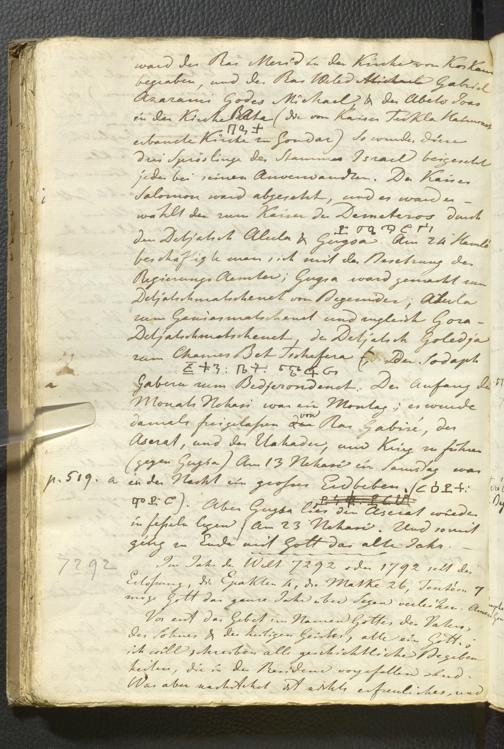 ward des Ras Merid in der Kirche von Koskam
begraben, und der Ras Weled Michael Gabriel
Azaranis Godes Michael & der Abeto Joas
in der Kirche Bata (die vom Kaiser Tekla Haimanot
በኣታ
erbaute Kirche in Gondar) So wurden diese
drei Sprösslinge des Stammes Israel beigesetzt
jeder bei seinen Anverwandten. Der Kaiser
Salomon ward abgesetzt, und es ward er-
wählt der zum Kaiser der Demetros durch
den Detjatsch Alula & Gugsa Am 24 Hamle
beschäftigte man sich mit der Besetzung der
Regierungs Aemter; Gugsa ward gemacht zum
Detjatschmatschenet von Begemider; Alula
zum Geniasmatschenet und zugleich Gora-
Detjatschmatschenet, der Detjatsch Goledja
zum Chames Bet Tschafera
Gaberu zum Bedjerondenet. Der Anfang des
Monats Nehasi war ein Montag; es wurde
damals freigelassen von Ras Gabrié, der
Aserat, und der Elahader, um Krieg zu führen
(gegen Gugsa) Am 13 Nehasi ein Samstag war
p. 519. a in der Nacht ein grosses Erdbeben
Aber Gugsa liess den Aserat wieder
in fesseln legen Am 23 Nehasi. Und somit
ging zu Ende mit Gott das alte Jahr.
7292 Im Jahr der Welt 7292 oder 1792 seit der
Erlösung, die Epakten 4, die Matke 26,
möge Gott das ganze Jahr über Segen verleihen. Amen
Vor erst das Gebet im Namen Gottes, des Vaters,
des Sohnes & des heiligen Geistes, alle ein Gott;
ich will schreiben alle geschichtliche Begeben-
heiten, die in der Residenz vorgefallen sind.
Was aber nachsteht ist nichts erfreuliches, und